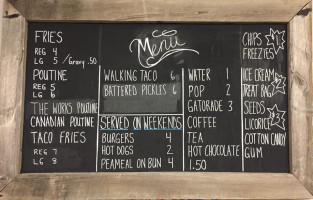 Menu
FRIES
REG 4
LG 5 / Gravy .50
POUTINE
REG 5
LG 6
THE WORKS POUTINE
CANADIAN POUTINE
TACO FRIES
REG 7
LG 8
WALKING TACO 6
BATTERED PICKLES 6
SERVED ON WEEKENDS
BURGERS 4
HOT DOGS 2
PEAMEAL ON BUN 4
WATER 1
POP 2
GATORADE 3
COFFEE
TEA
HOT CHOCOLATE
1.50
CHIPS
FREEZIES
ICE CREAM
TREAT BAG
SEEDS
LICORICE
COTTON CANDY
GUM